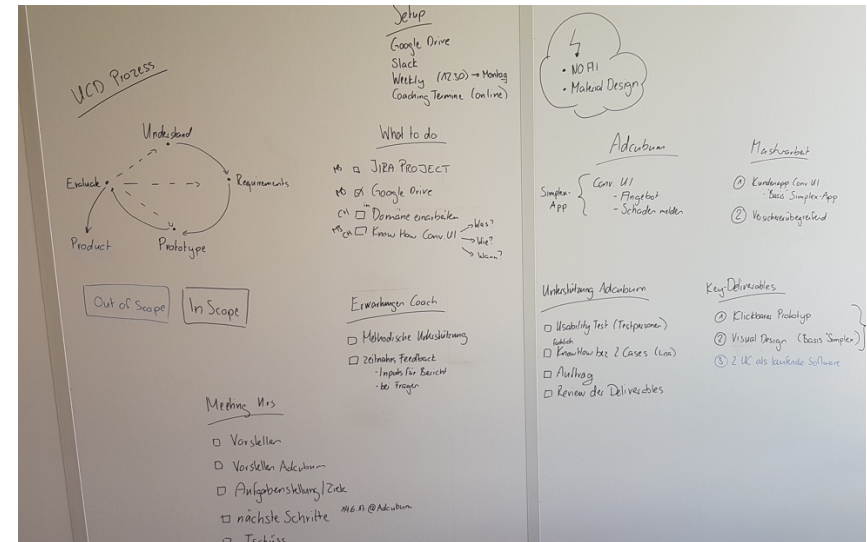 UCD Prozess
Understand
Evaluate
Requirements
Product
Prototype
Out of Scope
In Scope
Setup
Google Drive
Slack
Weekly (1230) → Montag
Coaching Termine (online)
What to do
MS □ JIRA PROJECT
☑ Google Drive
CH □ in Domäne einarbeiten
MS CH □ Know How Conv. UI
→ Was?
→ Wie?
→ Wann?
Erwartungen Coach
□ Methodische Unterstützung
□ zeitnahes Feedback
- Inputs für Bericht
- bei Fragen
Meeting Urs
□ Vorstellen
□ Vorstellen Adcubum
□ Aufgabenstellung/Ziele
□ nächste Schritte @Adcubum
□ Tschüss
• NO AI
• Material Design
Adcubum
Simplex-App
Conv. UI
- Angebot
- Schaden melden
Masterarbeit
① Kundenapp Conv UI
- Basis Simplex-App
② Versichererübergreifend
Unterstützung Adcubum
□ Usability Test (Testpersonen)
fachlich
□ KnowHow bez 2 Cases (Lisa)
□ Auftrag
□ Review der Deliverables
Key-Deliverables
① Klickbarer Prototyp
② Visual Design (Basis Simplex)
③ 2 UC als laufende Software